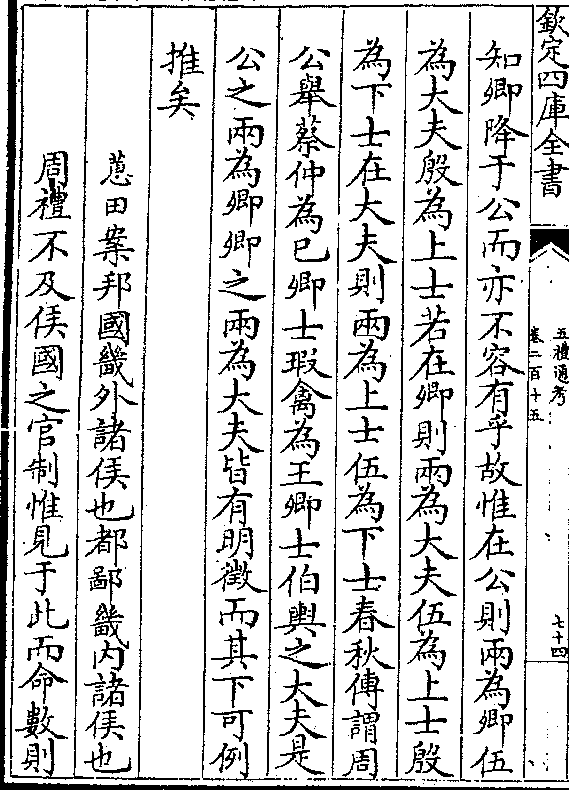 欽定四庫全書
五禮通考
卷二百十五
七十四
知卿降于公而亦不容有乎故惟在公則兩為卿伍
為大夫殷為上士若在卿則兩為大夫伍為上士殷
為下士在大夫則兩為上士伍為下士春秋傳謂周
公舉蔡仲為已卿士瑕禽為王卿士伯輿之大夫是
公之兩為卿卿之兩為大夫皆有明徵而其下可例
推矣
蕙田案邦國畿外諸侯也都鄙畿内諸侯也
周禮不及侯國之官制惟見于此而命數則